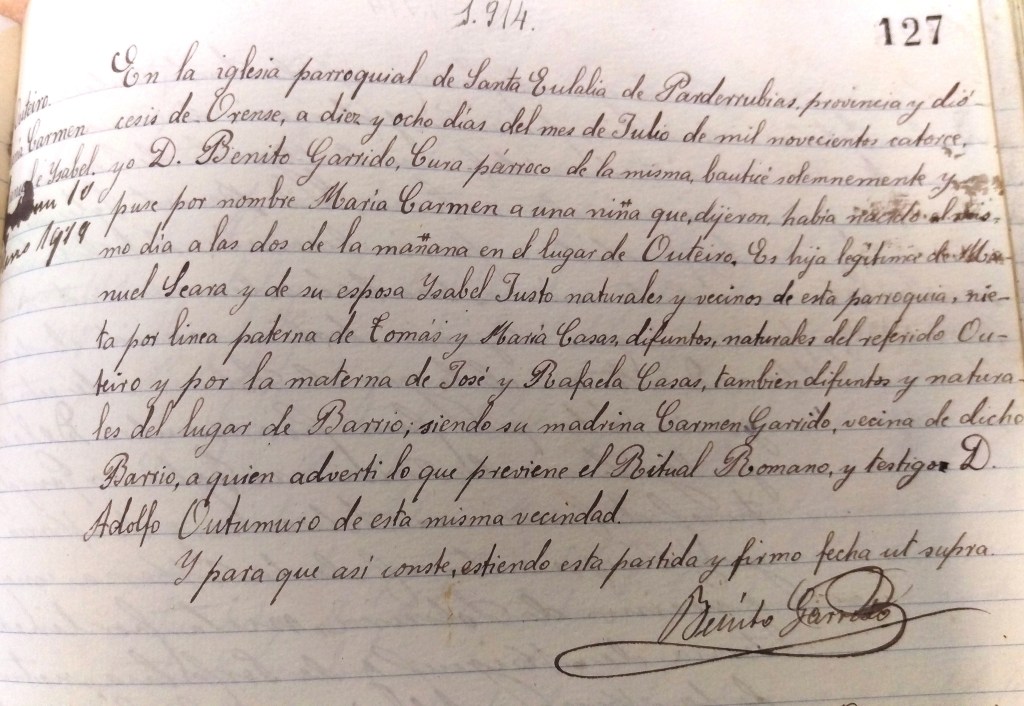 1.914.
127
En la iglesia parroquial de Santa Eulalia de Parderrubias, provincia y dió-
cesis de Orense, a diez y ocho días del mes de Julio de mil novecientos catorce,
yo D. Benito Garrido, Cura párroco de la misma, bauticé solemnemente y
puse por nombre María Carmen a una niña que, dijeron, había nacido el mis-
mo dia a las dos de la mañana en el lugar de Outeiro. Es hija legítima de Ma-
nuel Seara y de su esposa Ysabel Justo naturales y vecinos de esta parroquia, nie-
ta por linea paterna de Tomás y María Casas, difuntos, naturales del referido Ou-
teiro y por la materna de José y Rafaela Casas, tambien difuntos y natura-
les del lugar de Barrio; siendo su madrina Carmen Garrido, vecina de dicho
Barrio, a quien advertí lo que previene el Ritual Romano, y testigo D.
Adolfo Outumuro de esta misma vecindad.
Y para que así conste, estiendo esta partida y firmo fecha ut supra.
Benito Garrido
Carmen
e Ysabel.
10